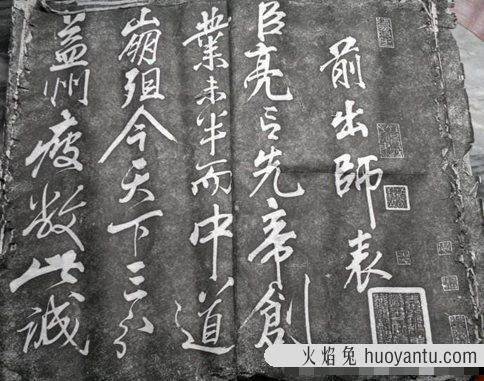 前出師表
臣亮言先帝創
業未半而中道
崩殂今天下三分
益州疲敝此誠
火焰兔 huoyantu.com